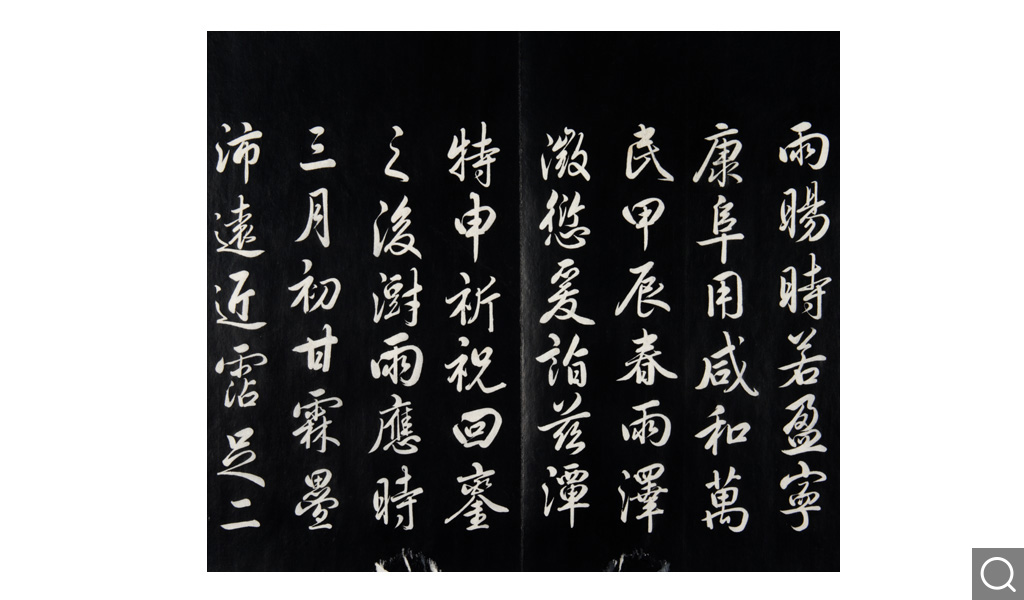 雨暘時若盈寧
康阜用咸和萬
民甲辰春雨澤
微愆爰詣茲潭
特申祈祝回鑾
之後澍雨應時
三月初甘霖疊
沛遠近霑足二